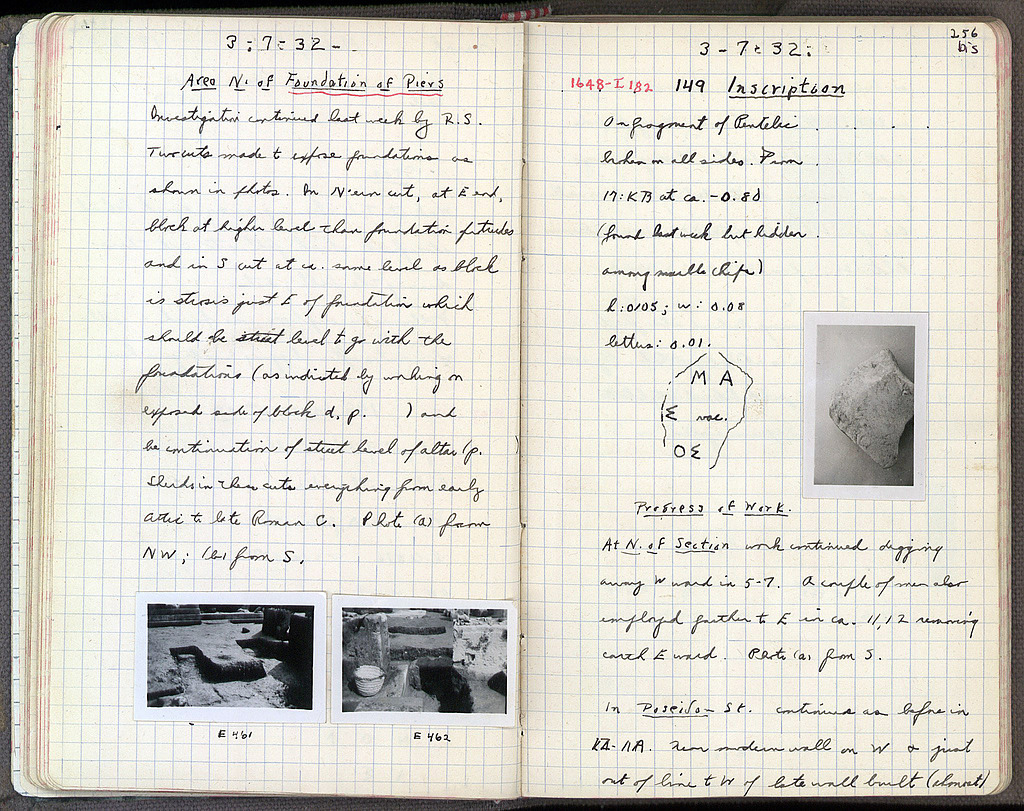 3:7:32-
Area N. of Foundation of Piers
Investigation continued last week by R.S.
Two cuts made to expose foundations as
shown in photos. In N'ern cut, at E end,
block at higher level than foundation protrudes
and in S cut at ca. same level as block
is stosis just E of foundation which
should be street level to go with the
foundations (as indicated by working on
exposed side of block d, p.      ) and
be continuation of street level of altar (p.      )
Sherds in these cuts everything from early
Attic to late Roman C. Photo (a) from
NW; (b) from S.
E 461
E 462
256
bis
3-7:32:
1648-I 182 149 Inscription
On fragment of Pentelic
broken on all sides. From
17:KB at ca. -0.80
(found last week but hidden
among marble chips)
h: 0.105; w: 0.08
letters: 0.01.
M A
Σ vac.
OΣ
Progress of Work.
At N. of Section work continued digging
away W ward in 5-7. A couple of men also
employed further to E in ca. 11,12 removing
earth E ward. Photo (a) from S.
In Poseido- St. continues as before in
ΚΔ-ΛΑ. Near modern wall on W & just
out of line to W of late wall built (almost)